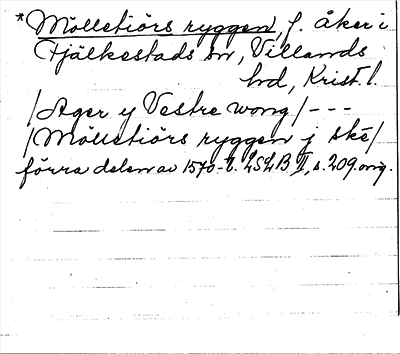 *Möllestiörs ryggen, f. åker i
Fjälkestads sn, Villands
hd, Krist. l.
/Ager y Vestre wong/ - - -
/Möllestiörs ryggen j ske/
förra delen av 1570-t. LSLB II, s. 209. orig.